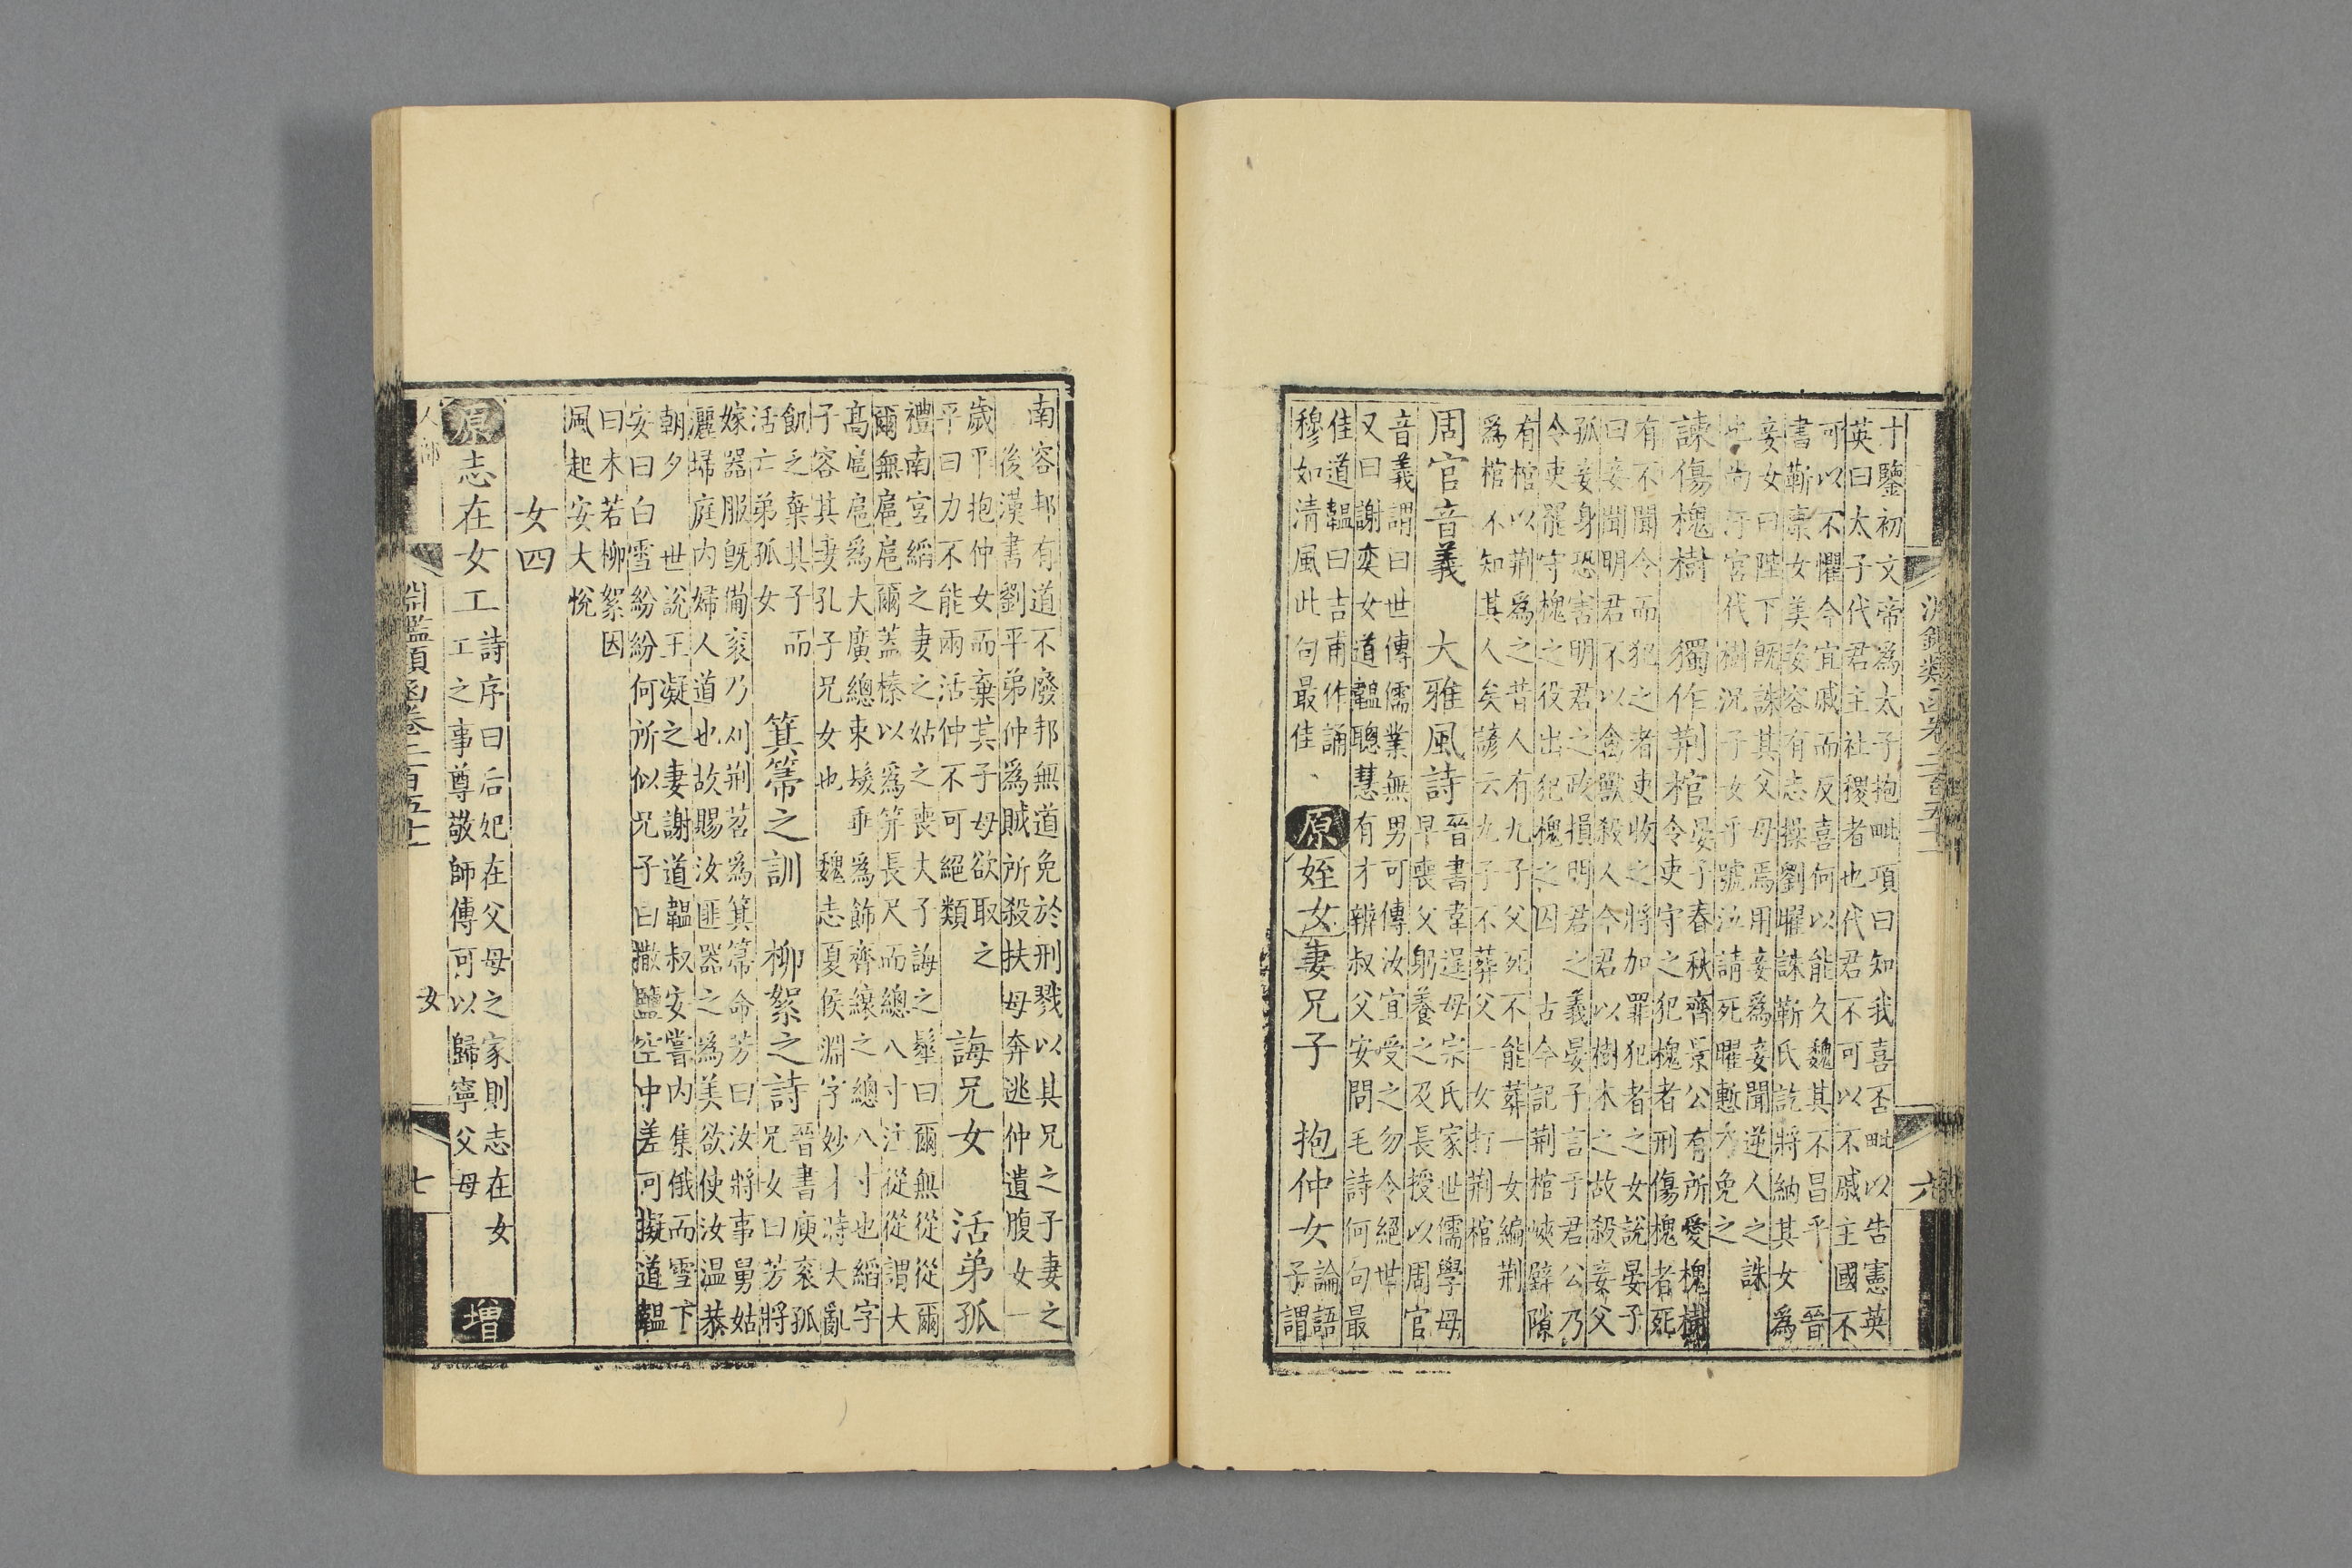 淵鑑類函卷二百五十二 六
十鑒初文帝為太子抱毗項曰知我喜否毗以告憲英
英曰太子代君主社稷者也代君不可以不戚主國不
可以不懼今宜戚而反喜何以能久魏其不昌乎 晉
書靳康女美姿容有志操劉曜誅靳氏訖將納其女為
妾女曰陛下旣誅其父母焉用妾為妾聞逆人之誅
也尚汙宮代樹況子女乎號泣請死曜慙才免之
諫傷槐樹 獨作荆棺 晏子春秋齊景公有所愛槐樹
令吏守之犯槐者刑傷槐者死
有不聞令而犯之者吏收之將加罪犯者之女說晏子
曰妾聞明君不以禽獸殺人今君以樹木之故殺妾父
孤妾身恐害明君之政損明君之義晏子言于君公乃
令吏罷守槐之役出犯槐之囚 古今記荆棺峽壁隙
有棺以荆爲之昔人有九子父死不能葬一女編荆
爲棺不知其人矣諺云九子不葬父一女打荆棺
周官音義 大雅風詩 晉書韋逞母宗氏家世儒學母
早喪父躬養之及長授以周官
音義謂曰世傳儒業無男可傳汝宜受之勿令絕世
又曰謝奕女道韞聰慧有才辨叔父安問毛詩何句最
佳道韞曰吉甫作誦
穆如清風此句最佳 原 姪女妻兄子 抱仲女 論語
子謂
南容邦有道不廢邦無道免於刑戮以其兄之子妻之
後漢書劉平弟仲爲賊所殺扶母奔逃仲遺腹女一
歲平抱仲女而棄其子母欲取之
平曰力不能兩活仲不可絕類 誨兄女 活弟孤
禮南宮縚之妻之姑之喪夫子誨之髽曰爾無從從爾
爾無扈扈爾蓋榛以爲笄長尺而總八寸注從從謂大
高扈扈爲大廣總束髮垂爲飾齊縗之總八寸也縚字
子容其妻孔子兄女也 魏志夏侯淵字妙才時大亂
飢乏棄其子而
活亡弟孤女 箕箒之訓 柳絮之詩 晉書庾袞孤
兄女曰芳將
嫁器服旣備袞乃刈荆苕爲箕箒命芳曰汝將事舅姑
灑埽庭内婦人道也故賜汝匪器之爲美欲使汝温恭
朝夕 世說王凝之妻謝道韞叔安嘗内集俄而雪下
安曰白雪紛紛何所似兄子曰撒鹽空中差可擬道韞
曰未若柳絮因
風起安大悅
女四
原 志在女工 詩序曰后妃在父母之家則志在女
工之事尊敬師傅可以歸寧父母 增
人部 淵鑑類函卷二百五十二 女 七